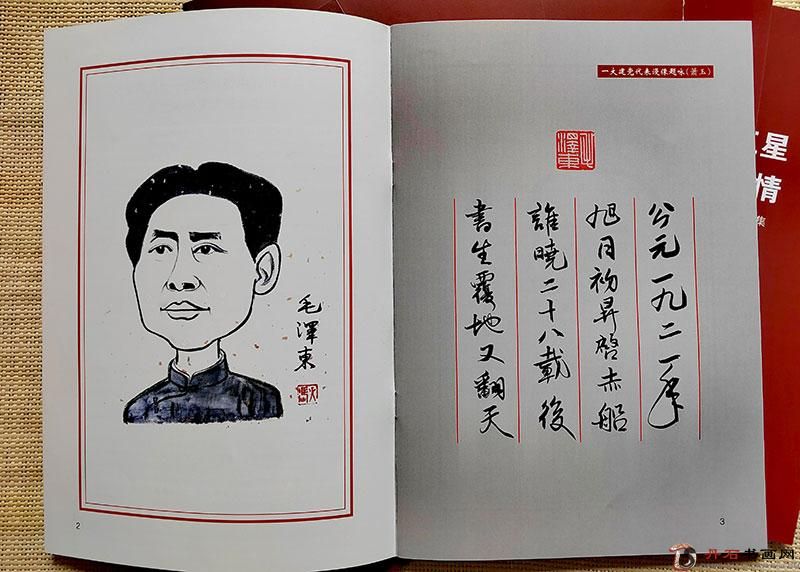 毛澤東
2
一大建党代表漫像题咏(萧玉)
毛澤東
公元一九二一年
旭日初昇啓赤船
誰曉二十八載後
書生覆地又翻天
3
星
情
集
丹石书画网